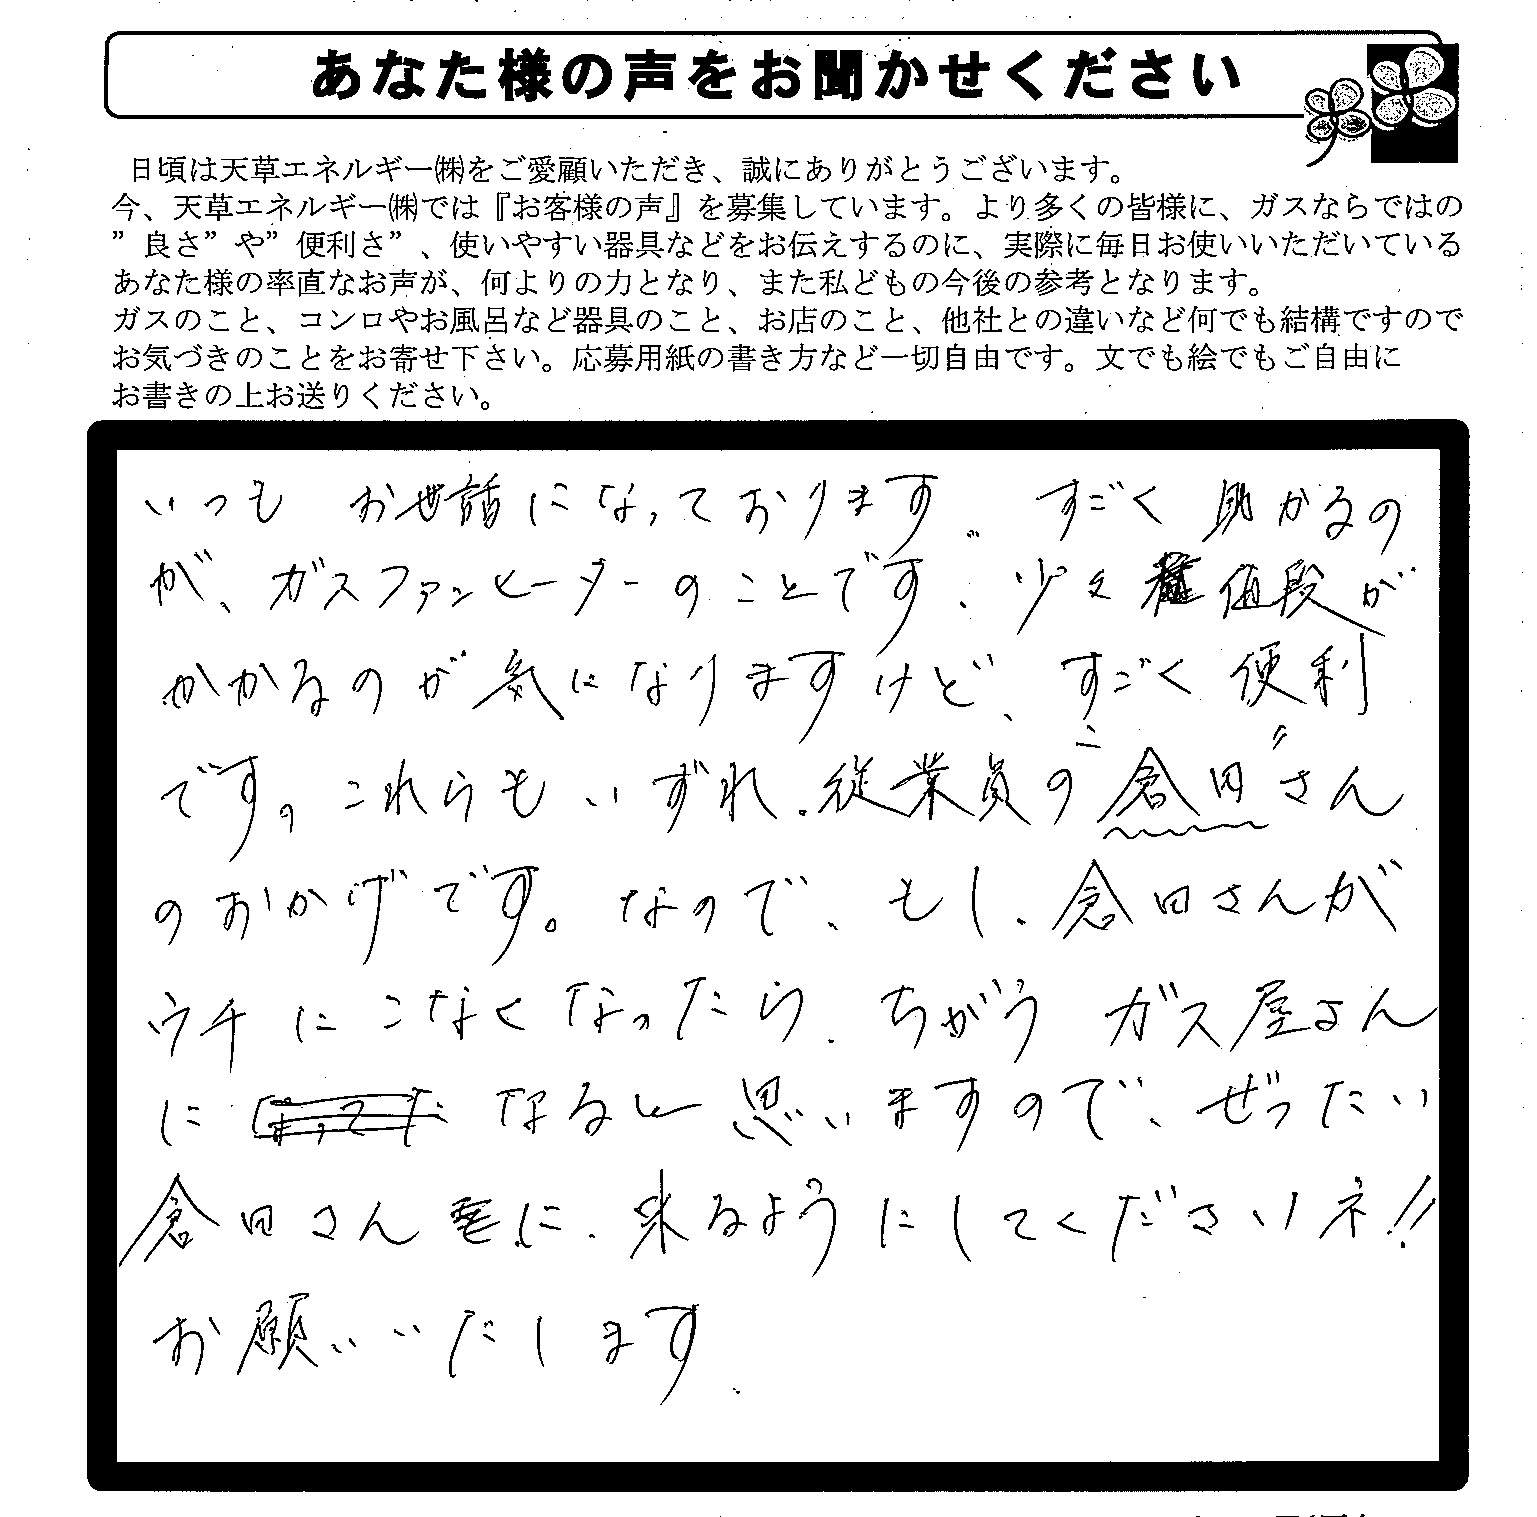 あなた様の声をお聞かせください
日頃は天草エネルギー㈱をご愛顧いただき、誠にありがとうございます。
今、天草エネルギー㈱では『お客様の声』を募集しています。より多くの皆様に、ガスならではの
”良さ”や”便利さ”、使いやすい器具などをお伝えするのに、実際に毎日お使いいただいている
あなた様の率直なお声が、何よりの力となり、また私どもの今後の参考となります。
ガスのこと、コンロやお風呂など器具のこと、お店のこと、他社との違いなど何でも結構ですので
お気づきのことをお寄せ下さい。応募用紙の書き方など一切自由です。文でも絵でもご自由に
お書きの上お送りください。
いつも お世話になっております。すごく助かるの
が、ガスファンヒーターのことです。少々値段が
かかるのが気になりますけど、すごく便利
です。これらもいずれ、従業員の“倉田”さん
のおかげです。なので、もし、倉田さんが
ウチにこなくなったら、ちがうガス屋さん
になると思いますので、ぜったい
倉田さんに、来るようにしてくださいネ!!
お願いいたします。